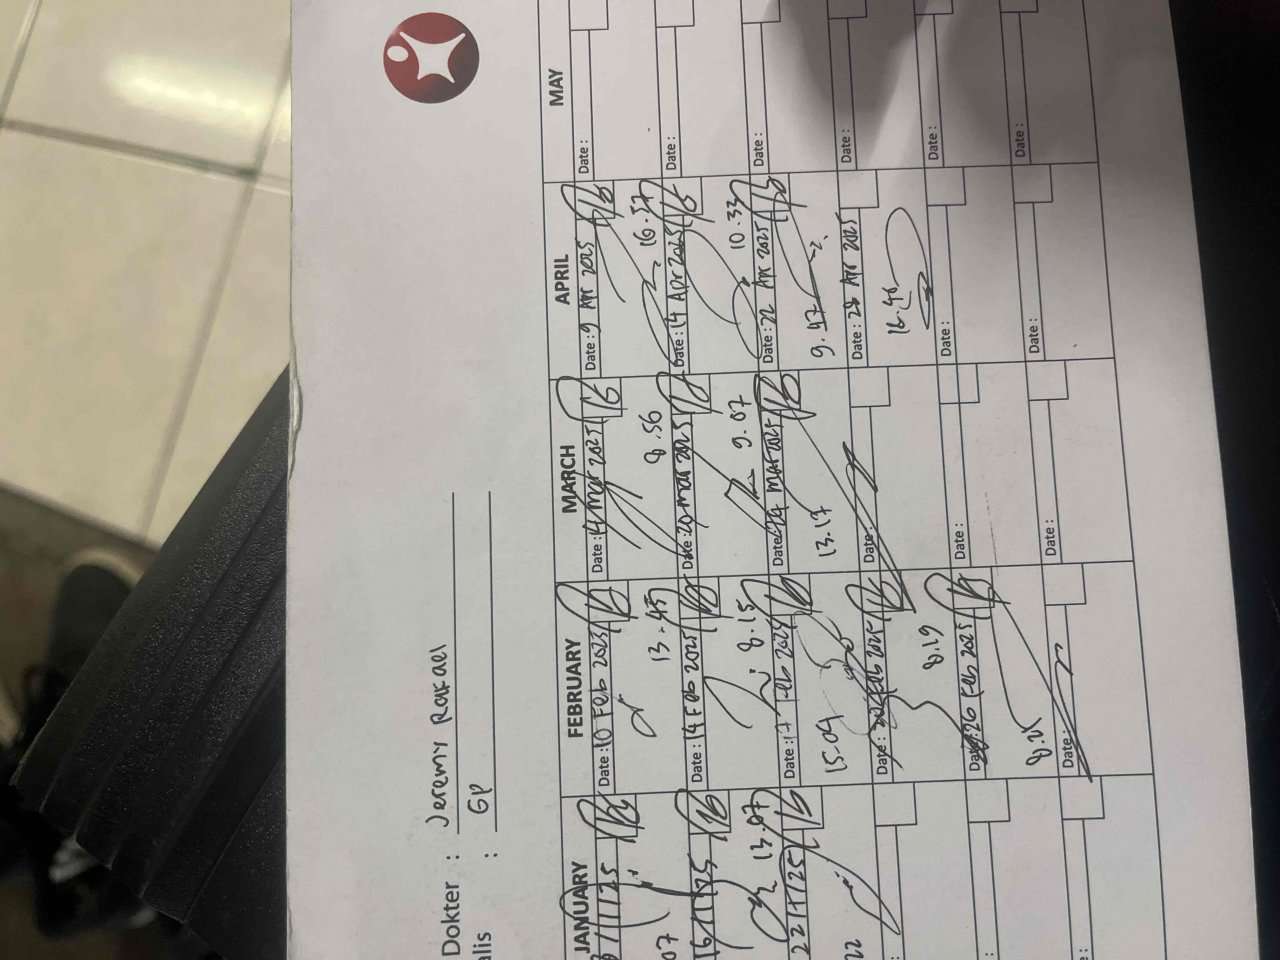 Dokter : Jeremy Rafael
alis : GP
JANUARY FEBRUARY MARCH APRIL MAY
/1/25 Date : 10 Feb 2025 Date : 14 Mar 2025 Date : 9 Apr 2025 Date :
07 13.45 8.56 16.57
16/1/25 Date : 14 Feb 2025 Date : 20 Mar 2025 Date : 14 Apr 2025 Date :
13.07 8.15 9.07 10.33
22/1/25 Date : 17 Feb 2025 Date : 24 Mar 2025 Date : 22 Apr 2025 Date :
22 15.09 13.17 9.47
: Date : Feb 2025 Date : Date : 28 Apr 2025 Date :
8.19 16.46
: Date : 26 Feb 2025 Date : Date : Date :
8.21
: Date : Date : Date : Date :